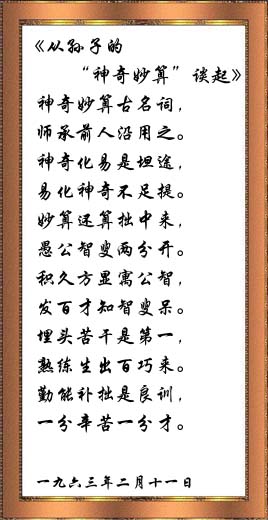 《从孙子的
“神奇妙算”谈起》
神奇妙算古名词，
师承前人沿用之。
神奇化易是坦途，
易化神奇不足提。
妙算还算拙中来，
愚公智叟两分开。
积久方显寓公智，
发白才知智叟呆。
埋头苦干是第一，
熟练生出百巧来。
勤能补拙是良训，
一分辛苦一分才。
一九六三年二月十一日